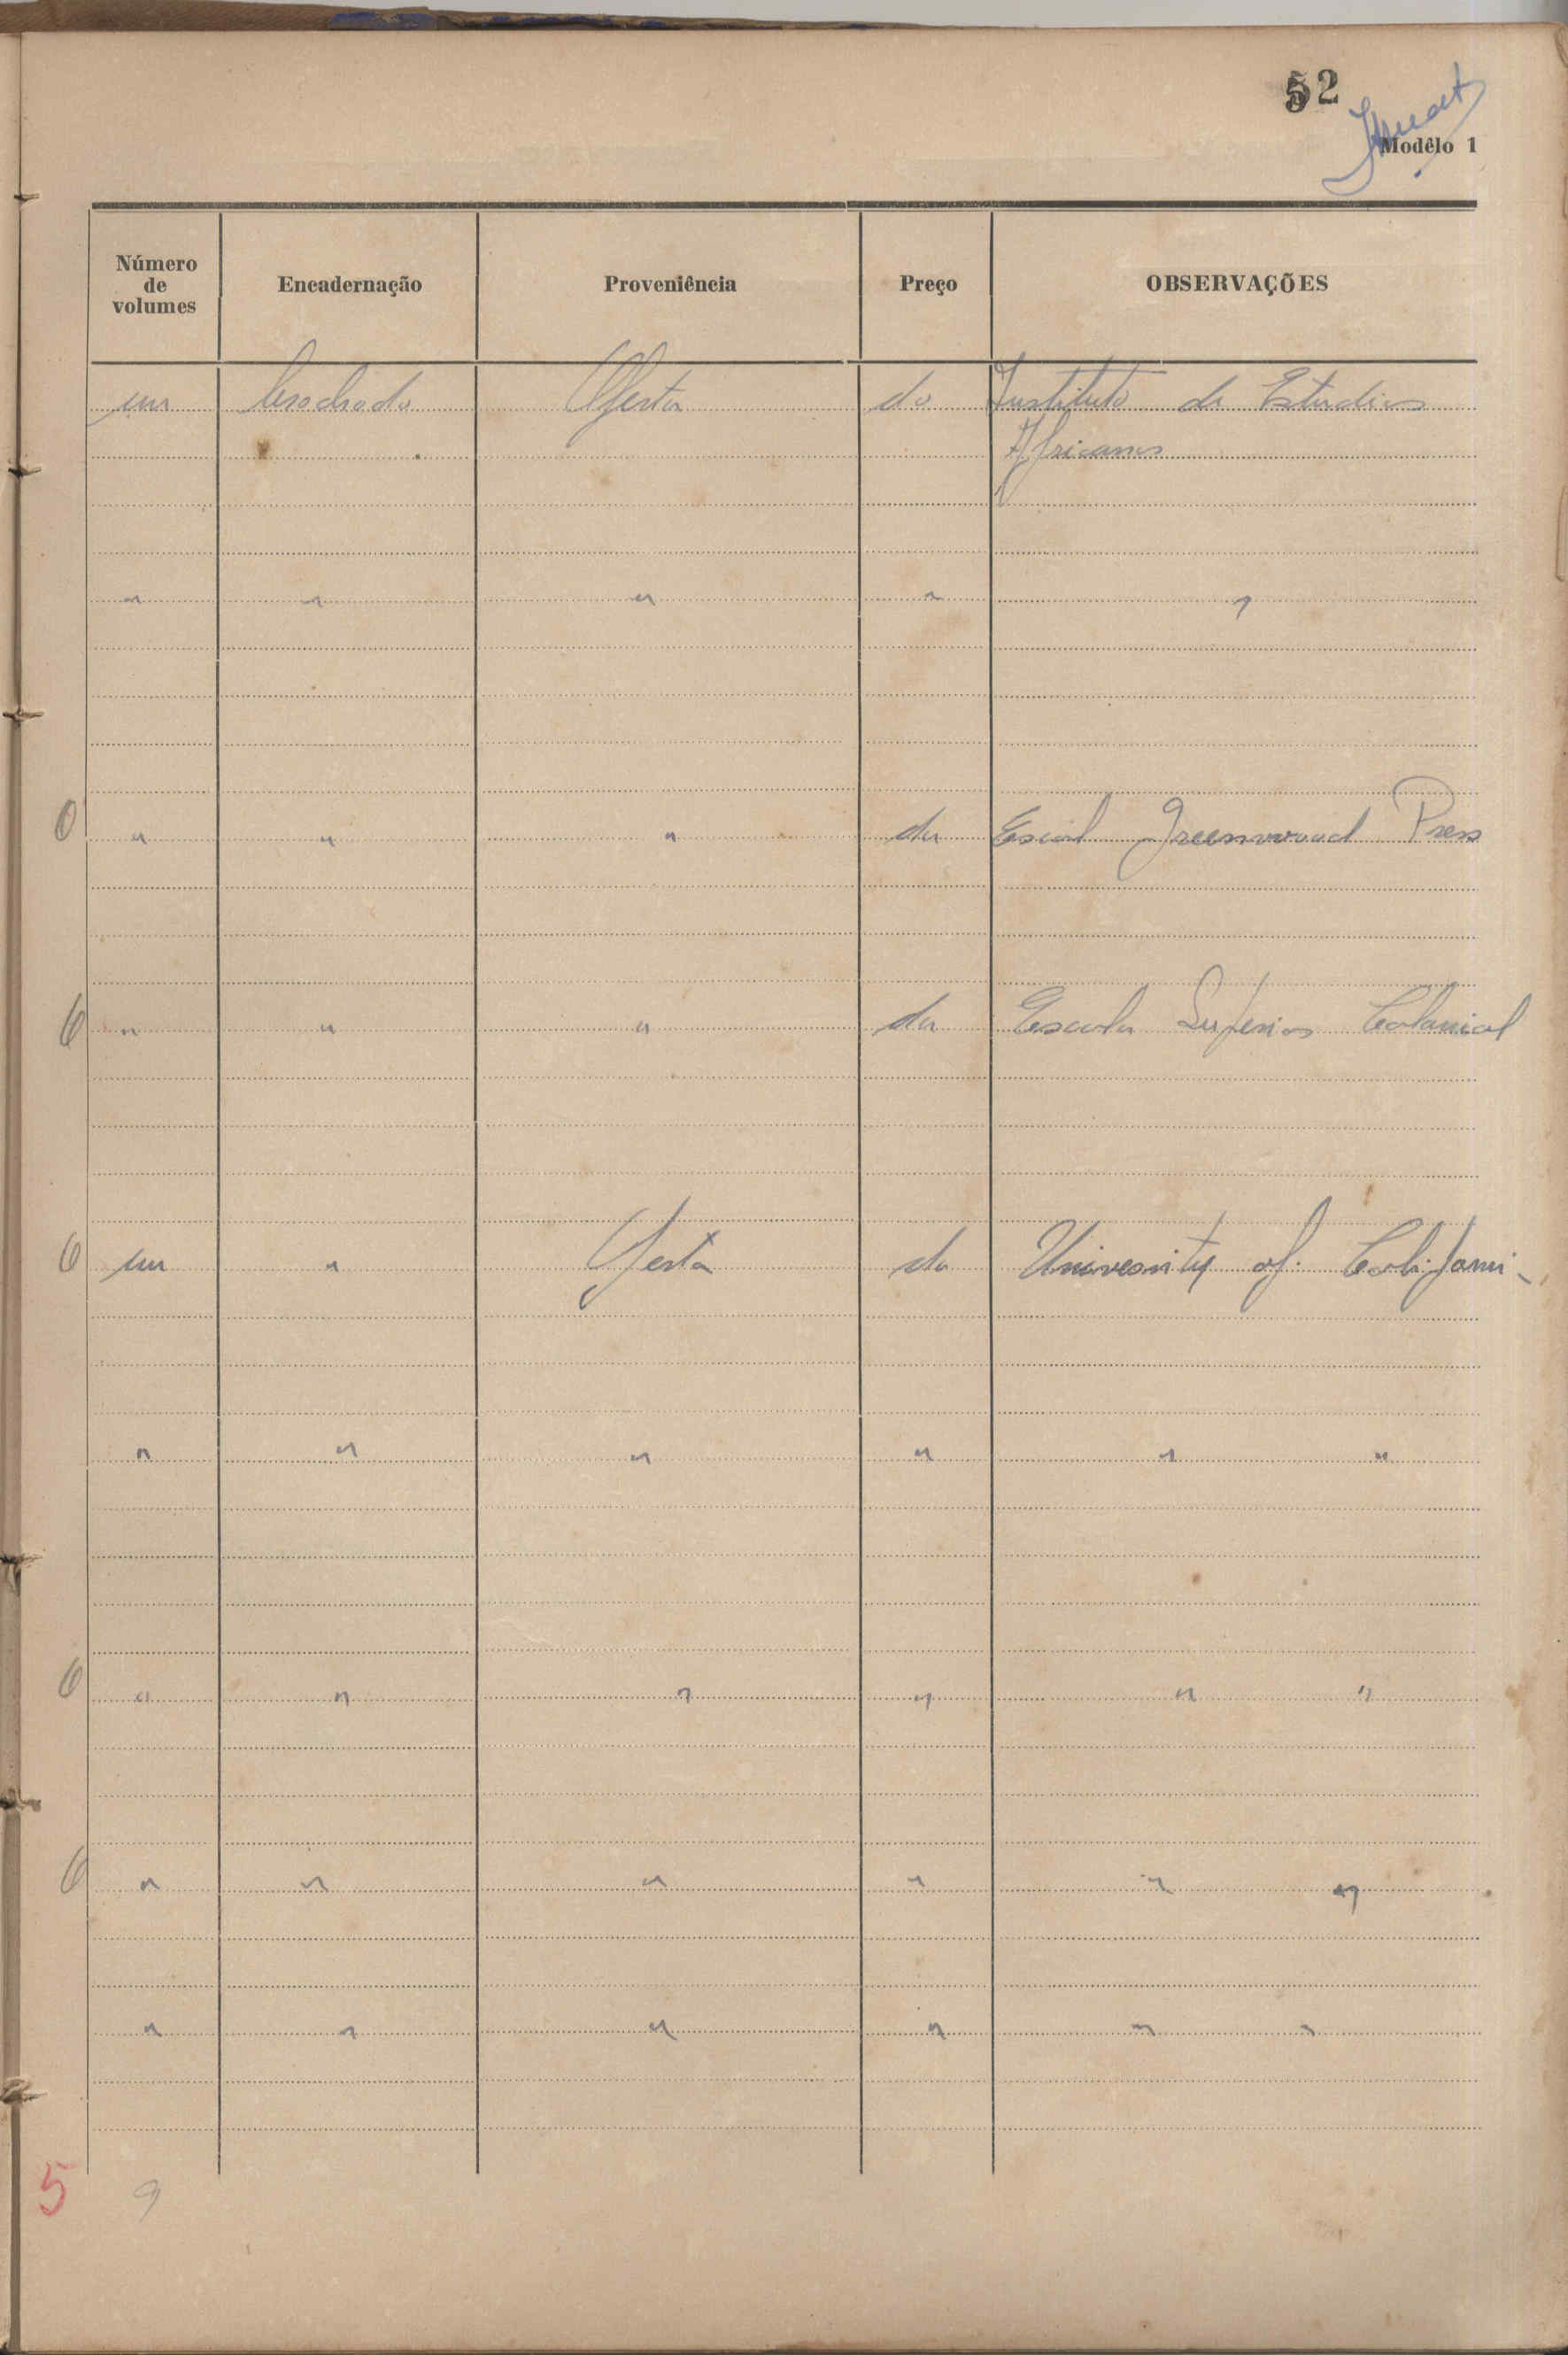 52
Modêlo 1
Número de volumes Encadernação Proveniência Preço OBSERVAÇÕES
um brochado Oferta do Instituto de Estudios
Africanos
" " " " "
0 " " " da Greenwood Press
6 " " " da Escola Superior Colonial
6 um " Oferta da University of Californi
" " " " " "
6 " " " " " "
6 " " " " " "
" " " " " "
5 9